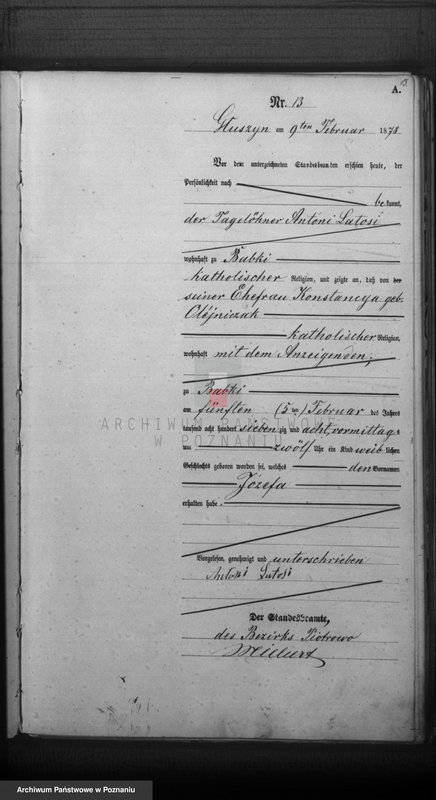 A.
Nr. 13
Głuszyn am 9ten Februar 1878
Vor dem unterzeichneten Standesbeamten erschien heute, der
Persönlichkeit nach
bekannt,
der Tagelöhner Antoni Latosi
wohnhaft zu Babki
katholischer Religion, und zeigte an, daß von der
seiner Ehefrau Konstancya geb.
Olejniczak
katholischer Religion,
wohnhaft mit dem Anzeigenden,
zu Babki
am fünften (5ten) Februar des Jahres
tausend acht hundert siebenzig und acht, vormittags
um zwölf Uhr ein Kind weiblichen
Geschlechts geboren worden sei, welches den Vornamen
Józefa
erhalten habe.
Vorgelesen, genehmigt und unterschrieben
Antoni Latosi
Der Standesbeamte,
des Bezirks Piotrowo
ARCHIWUM PAŃSTWOWE
W POZNANIU
Archiwum Państwowe w Poznaniu